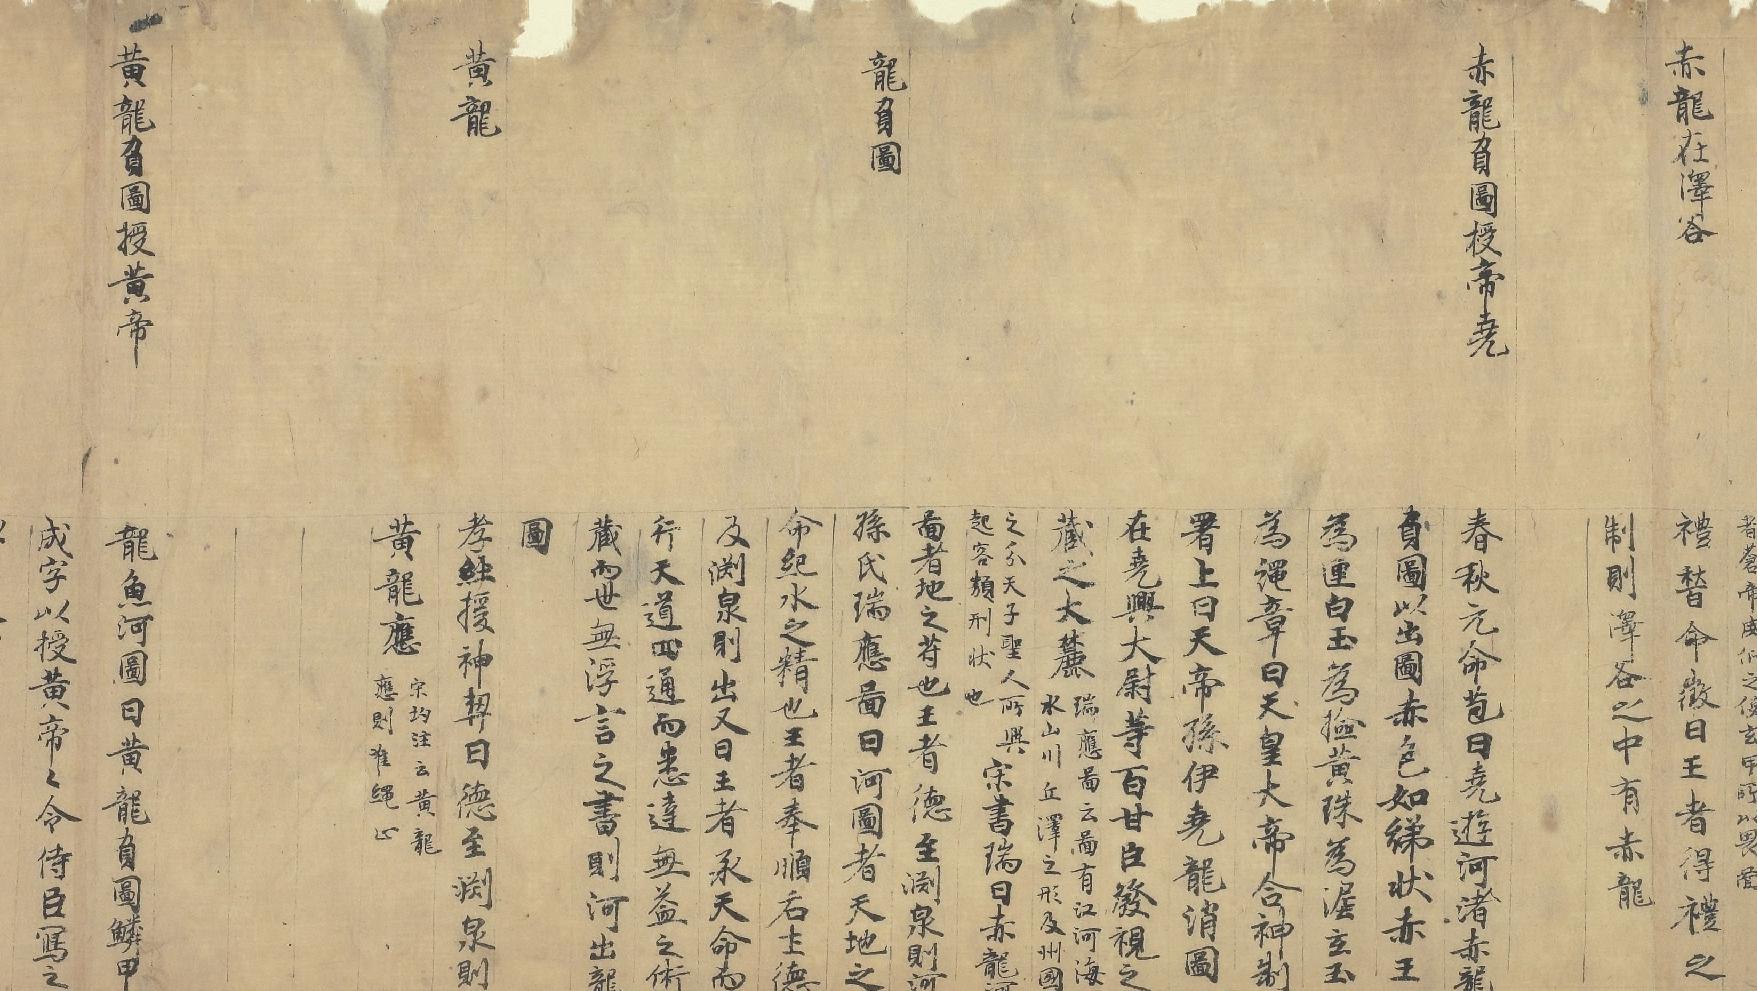 赤龍在澤谷
禮嵆命徵曰王者得禮之
制則澤谷之中有赤龍
赤龍負圖授帝堯
春秋元命苞曰堯遊河渚赤龍
負圖以出圖赤色如綈狀赤玉
為匣白玉為撿黃珠為渥玄玉
為繩章曰天皇大帝合神制
署上曰天帝孫伊堯龍消圖
在堯興大尉等百廿臣發視之
藏之大麓
瑞應啚云啚有江河海
水山川丘澤之形及州國
之分天子聖人所興
起容類刑狀也
宋書瑞曰赤龍河
啚者地之苻也王者德至渕泉則河
龍負圖
孫氏瑞應啚曰河圖者天地之
命紀水之精也王者奉順后土德
及渕泉則出又曰王者承天命而
行天道四通而悉達無益之術
藏而世無浮言之書則河出龍
圖
黃龍
孝經援神契曰德至渕泉則
黃龍應
宋均注云黃龍
應則准繩止
黃龍負圖授黃帝
龍魚河圖曰黃龍負圖鱗甲
成字以授黃帝〻令侍臣寫之